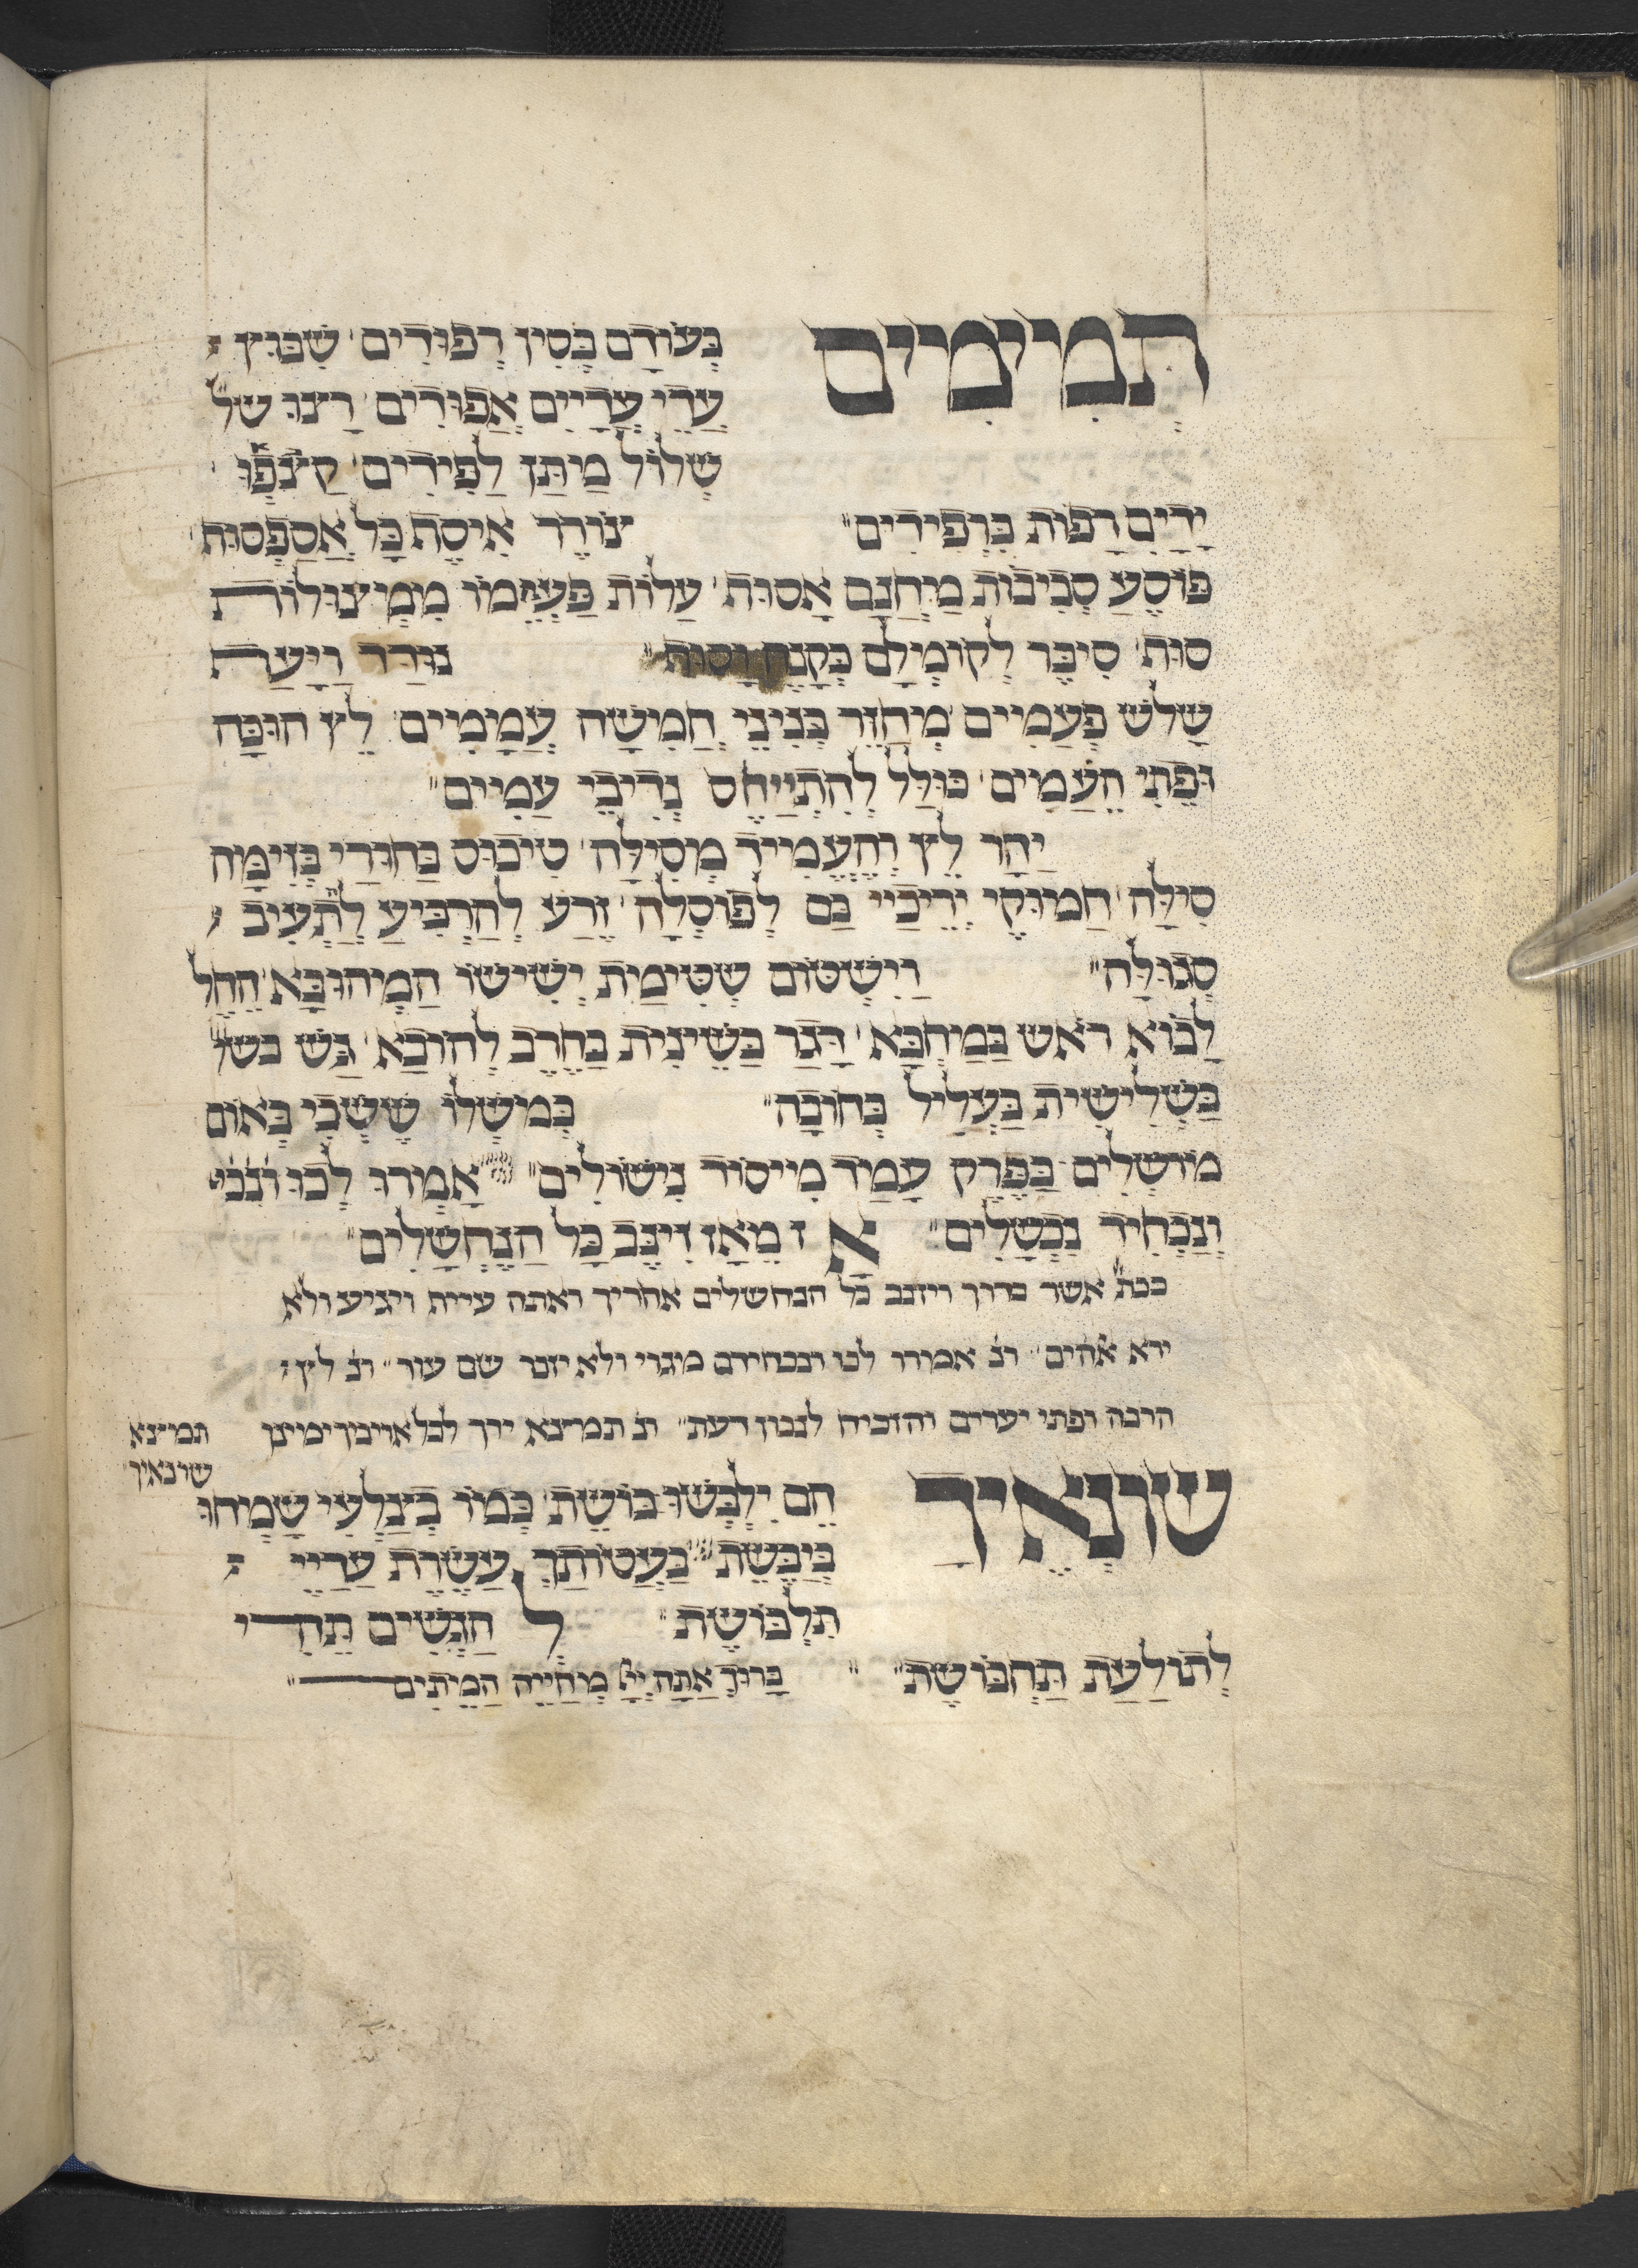 תְּמִימִים בְּעוֹדָם כְּסִין רְפוּדִים שִׁבּוּץ
עֲדֵי עֲדָיִים אֲפוּדִים רָצוּ של
שְׁלוֹל מַתַּן לַפִּידִים קֻצֹּפוּ
יָדַיִם רָפוֹת כִּרְפִידִים צוֹרֵר אִיסַת כָּל אֲסַפְסוּת
פּוֹסֵעַ סְבִיבוֹת מַחֲנָם אָסוּת עֲלוֹת פַּעֲמוֹ מִמְּצוּלוֹת
סוּת סִיכֵּר לְקוֹמְלָם כְּקָנֶה וָסוּף נוּדַּד וַיָּעַט
שָׁלשׁ פְּעָמִים מְחַזֵּר בְּנִינֵי חֲמִשָּׁה עֲמָמִים לֵץ הוּכָּה
וּפֶתִי הֶעֱמִים כּוּלַל לְהִתְיַיחֵס נְדִיבֵי עַמִּים
יָהַר לֵץ וְהֶעֱמִיד מְסִילָּה טִיכּוּס בַּחוּרַי בְּזִימָּה
סִילָּה חַמּוּקֵי יְרֵיכַיי גַּם לְפוֹסְלָה זֶרַע לְהַרְבִּיעַ לְתַּעֵיב
סְגוּלָּה וַיִּשְׂטוֹם שְׂטִימַת יְשִׁישׁוֹ הַמְּהוּבָּא הֵחֵל
לָבוֹא רֹאשׁ בַּמַּחְבָּא דָּגַר בַּשֵּׁינִית בַּחֶרֶב לְחוֹבָא גַּשׁ בש
בַּשְּׁלִישִׁית בַּעֲלִיל בְּחוֹבָה בְּמוֹשְׁלוֹ שֶׁשְּׁבִי בְּאוֹם
מוֹשְׁלִים בַּפֶּרֶק עָמַד מִייסוֹד נִישׁוֹלִים אָמְרוּ לְכוּ וְנַכּוּ
וְנַכְחִיד נִכְשָׁלִים אָז מֵאָז זִינֵּב כָּל הַנֶּחֱשָׁלִים
ככת אשר קרוך ויזנב כל הנחשלים אחריך ואתה עייף ויגיע ולא
ירא אהים ונ אמרו לכו ונכחידם מגוי ולא יזכר שם עוד ונ לץ
הכה ופתי יערים והוכיח לנבון דעת ונ תמצא ידך לכל אויבך ימינך תמצא
שונאיך
שׂוֹנְאֶיךָ הֵם יִלְבְּשׁוּ בוֹשֶׁת כְּמוֹ בְצַלְעִי שָׂמְחוּ
כְּיַבֶּשֶׁת בַּעֲטוֹתָךְ עַשֶּׂרֶת עֲדָיֵי
תִלְבּוֹשֶׁת ל חַגָּשִׁים תַּחֲדִי
לְתוֹלַעַת תַּחְבּוֹשֶׁת בָּרוּךְ אַתָּה יְיָ מְחַיֵּה הַמֵּתִים